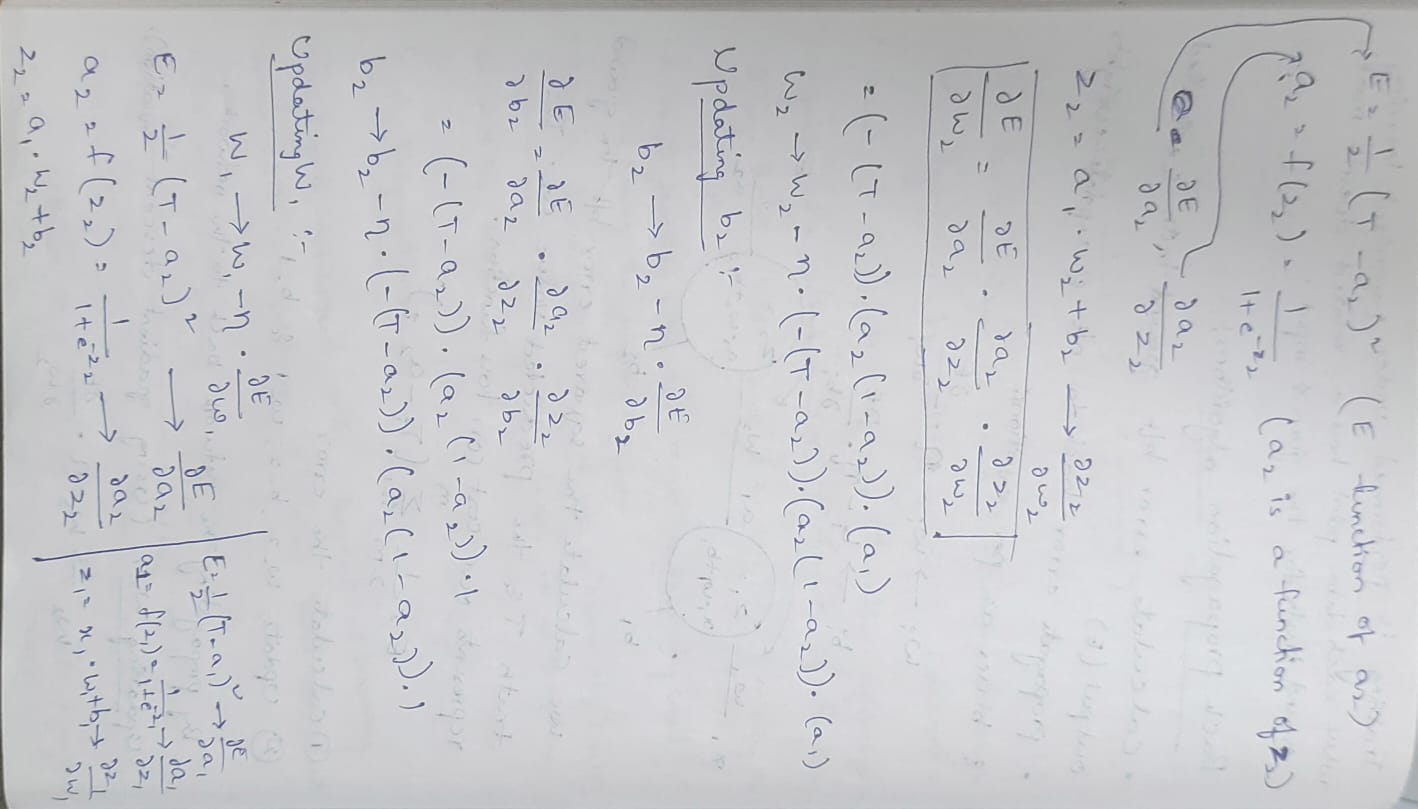 E = 1/2 (T - a₂)² (E function of a₂)
a₂ = f(z₂) = 1/(1+e^(-z₂)) (a₂ is a function of z₂)
∂E/∂a₂, ∂a₂/∂z₂
z₂ = a₁ · w₂ + b₂ → ∂z₂/∂w₂
∂E/∂w₂ = ∂E/∂a₂ · ∂a₂/∂z₂ · ∂z₂/∂w₂
= (-(T-a₂)).(a₂(1-a₂)).(a₁)
w₂ → w₂ - η · (-(T-a₂)).(a₂(1-a₂)). (a₁)
Updating b₂ :-
b₂ → b₂ - η · ∂E/∂b₂
∂E/∂b₂ = ∂E/∂a₂ · ∂a₂/∂z₂ · ∂z₂/∂b₂
= (-(T-a₂)). (a₂(1-a₂)) · 1
b₂ → b₂ - η · (-(T-a₂)).(a₂(1-a₂)).1
Updating W₁ :-
W₁ → W₁ - η · ∂E/∂w₁
E = 1/2 (T - a₂)² → ∂E/∂a₂
a₂ = f(z₂) = 1/(1+e^(-z₂)) → ∂a₂/∂z₂
z₂ = a₁ · W₂ + b₂
E = 1/2 (T-a₁)² → ∂E/∂a₁
a₁ = f(z₁) = 1/(1+e^(-z₁)) → ∂a₁/∂z₁
z₁ = x₁ · w₁ + b₁ → ∂z₁/∂w₁